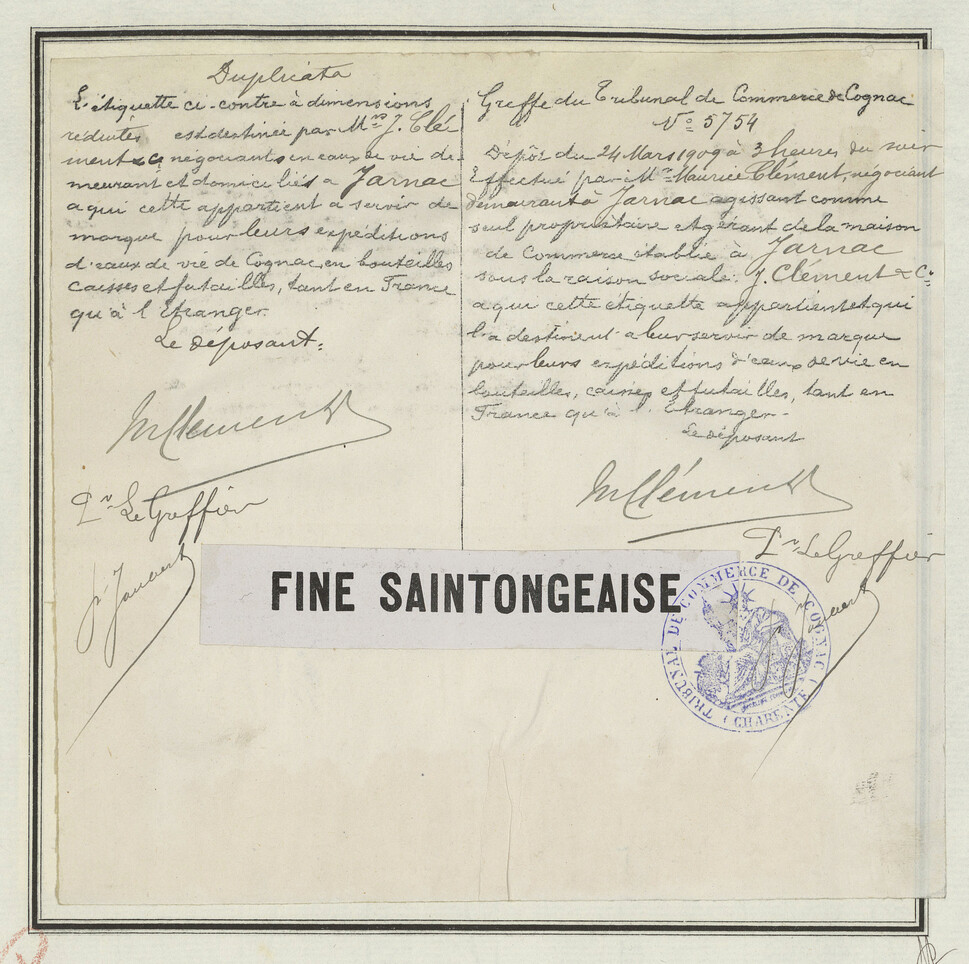 Duplicata
L'étiquette ci-contre à dimensions
réduites est destinée par Mrs J. Clé
ment & Cie négociants en eaux de vie de
meurant et domiciliés à Jarnac
a qui cette appartient a servir de
marque pour leurs expéditions
d'eaux de vie de Cognac, en bouteilles
caisses et futailles, tant en France
qu'à l'Etranger.
Le déposant:
M Clément
Pr Le Greffier
Joubert
Greffe du Tribunal de Commerce de Cognac
No 5754
Dépôt du 24 Mars 1909 à 3 heures du soir
Effectué par Mr Maurice Clément, négociant
demeurant à Jarnac agissant comme
seul propriétaire et gérant de la maison
de Commerce établie à Jarnac
sous la raison sociale: J. Clément & Cie
a qui cette étiquette appartient et qui
l'a destinent a leur servir de marque
pour leurs expéditions d'eaux de vie en
bouteilles, caisses et futailles, tant en
France qu'à l'Etranger.-
Le déposant
M Clément
Pr Le Greffier
FINE SAINTONGEAISE
TRIBUNAL DE COMMERCE DE COGNAC
(CHARENTE)